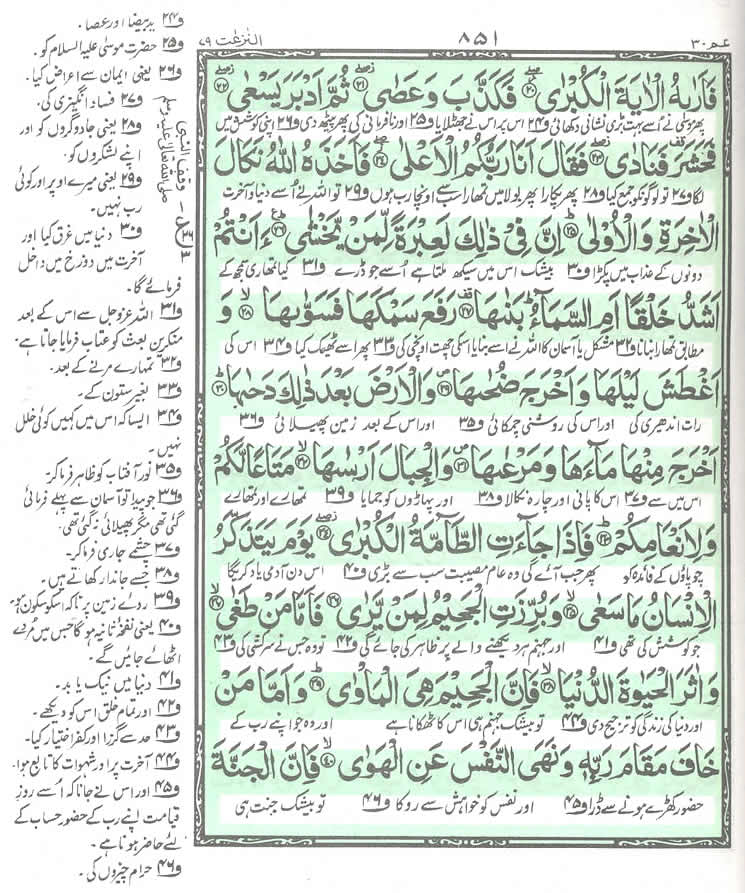 عم ٣٠
٨۵١
النّٰزعٰت ٧٩
فَاَرٰىهُ الْاٰيَةَ الْكُبْرٰى ﴿٢٠﴾ فَكَذَّبَ وَعَصٰى ﴿٢١﴾ ثُمَّ اَدْبَرَ يَسْعٰى ﴿٢٢﴾
پھر موسٰی نے اُسے بہت بڑی نشانی دکھائی و۲۴ اس پر اس نے جھٹلایا و۲۵ اور نافرمانی کی پھر پیٹھ دی و۲۶ اپنی کوشش میں
فَحَشَرَ فَنَادٰى ﴿٢٣﴾ فَقَالَ اَنَا رَبُّكُمُ الْاَعْلٰى ﴿٢٤﴾ فَاَخَذَهُ اللّٰهُ نَكَالَ
لگا و۲۷ تو لوگوں کو جمع کیا و۲۸ پھر پکارا پھر بولا میں تمھارا سب سے اونچا رب ہوں و۲۹ تو اللہ نے اُسے دنیا و آخرت
الْاٰخِرَةِ وَالْاُوْلٰى ﴿٢٥﴾ اِنَّ فِىْ ذٰلِكَ لَعِبْرَةً لِّمَنْ يَّخْشٰى ﴿٢٦﴾ ءَاَنْتُمْ
دونوں کے عذاب میں پکڑا و۳۰ بیشک اس میں سیکھ ملتا ہے اُسے جو ڈرے و۳۱ کیا تمھاری سمجھ کے
اَشَدُّ خَلْقًا اَمِ السَّمَآءُ بَنٰىهَا ﴿٢٧﴾ رَفَعَ سَمْكَهَا فَسَوّٰىهَا ﴿٢٨﴾ وَ
مطابق تمھارا بنانا و۳۲ مشکل یا آسمان کا اللہ نے اسے بنایا اسکی چھت اونچی کی و۳۳ پھر اسے ٹھیک کیا و۳۴ اس کی
اَغْطَشَ لَيْلَهَا وَاَخْرَجَ ضُحٰىهَا ﴿٢٩﴾ وَالْاَرْضَ بَعْدَ ذٰلِكَ دَحٰىهَا ﴿٣٠﴾
رات اندھیری کی اور اس کی روشنی چمکائی و۳۵ اور اس کے بعد زمین پھیلائی و۳۶
اَخْرَجَ مِنْهَا مَآءَهَا وَمَرْعٰىهَا ﴿٣١﴾ وَالْجِبَالَ اَرْسٰىهَا ﴿٣٢﴾ مَتَاعًا لَّكُمْ
اس میں سے و۳۷ اس کا پانی اور چارہ نکالا و۳۸ اور پہاڑوں کو جمایا و۳۹ تمھارے اور تمھارے
وَلِاَنْعَامِكُمْ ﴿٣٣﴾ فَاِذَا جَآءَتِ الطَّآمَّةُ الْكُبْرٰى ﴿٣٤﴾ يَوْمَ يَتَذَكَّرُ
چوپاؤں کے فائدہ کو پھر جب آئے گی وہ عام مصیبت سب سے بڑی و۴۰ اس دن آدمی یاد کریگا
الْاِنْسَانُ مَا سَعٰى ﴿٣٥﴾ وَبُرِّزَتِ الْجَحِيْمُ لِمَنْ يَّرٰى ﴿٣٦﴾ فَاَمَّا مَنْ طَغٰى ﴿٣٧﴾
جو کوشش کی تھی و۴۱ اور جہنم ہر دیکھنے والے پر ظاہر کی جائے گی و۴۲ تو وہ جس نے سرکشی کی و۴۳
وَاٰثَرَ الْحَيٰوةَ الدُّنْيَا ﴿٣٨﴾ فَاِنَّ الْجَحِيْمَ هِىَ الْمَاْوٰى ﴿٣٩﴾ وَاَمَّا مَنْ
اور دنیا کی زندگی کو ترجیح دی و۴۴ تو بیشک جہنم ہی اس کا ٹھکانا ہے اور وہ جو اپنے رب کے
خَافَ مَقَامَ رَبِّهٖ وَنَهَى النَّفْسَ عَنِ الْهَوٰى ﴿٤٠﴾ فَاِنَّ الْجَنَّةَ
حضور کھڑے ہونے سے ڈرا و۴۵ اور نفس کو خواہش سے روکا و۴۶ تو بیشک جنت ہی
و۲۴ یدِ بیضا اور عصا۔
و۲۵ حضرت موسٰی علیہ السلام کو۔
و۲۶ یعنی ایمان سے اعراض کیا۔
و۲۷ فساد انگیزی کی۔
و۲۸ یعنی جادوگروں کو اور
اپنے لشکروں کو۔
و۲۹ یعنی میرے اوپر اور کوئی
رب نہیں۔
و۳۰ دنیا میں غرق کیا اور
آخرت میں دوزخ میں داخل
فرمائے گا۔
و۳۱ اللہ عزوجل سے اس کے بعد
منکرینِ بعث کو عتاب فرمایا جاتا ہے۔
و۳۲ تمہارے مرنے کے بعد۔
و۳۳ بغیر ستون کے۔
و۳۴ ایسا کہ اس میں کہیں کوئی خلل
نہیں۔
و۳۵ نورِ آفتاب کو ظاہر فرما کر۔
و۳۶ جو پیدا تو آسمان سے پہلے فرمائی
گئی تھی مگر پھیلائی نہ گئی تھی۔
و۳۷ چشمے جاری فرما کر۔
و۳۸ جسے جاندار کھاتے ہیں۔
و۳۹ روئے زمین پر تاکہ اسکو سکون ہو۔
و۴۰ یعنی نفخۂ ثانیہ ہوگا جس میں مُردے
اٹھائے جائیں گے۔
و۴۱ دنیا میں نیک یا بد۔
و۴۲ اور تمام خلق اس کو دیکھے۔
و۴۳ حد سے گزرا اور کفر اختیار کیا۔
و۴۴ آخرت پر اور شہوات کا تابع ہوا۔
و۴۵ اور اس نے جانا کہ اُسے روزِ
قیامت اپنے رب کے حضور حساب کے
لئے حاضر ہونا ہے۔
و۴۶ حرام چیزوں کی۔
وقف النبی
صلی اللہ تعالٰی علیہ وسلم
ع
٢٦
٣